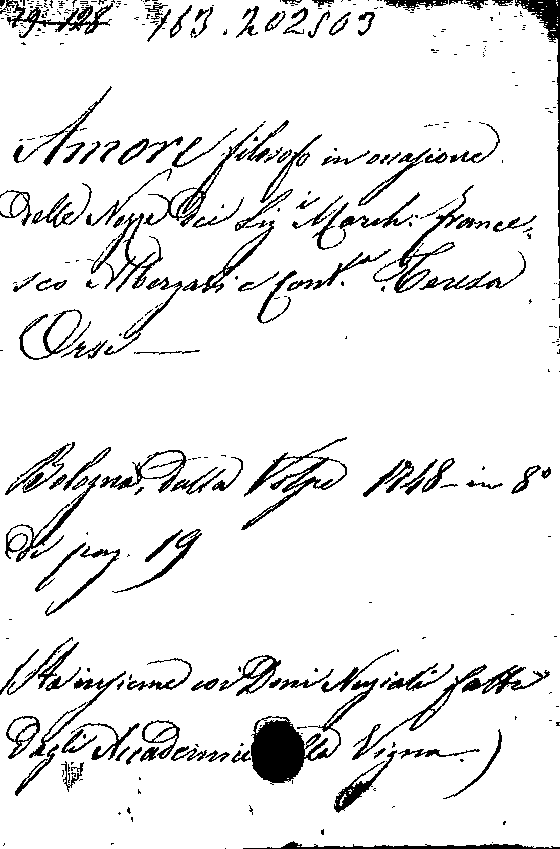 79-128 163.202503
Amore filosofo in occasione
delle Nozze dei Sig.i March: France-
sco Albergati e Cont.a Teresa
Orsi —
Bologna, dalla Volpe 1748 - in 8°
di pag. 19
(Sta insieme coi Doni Nuziali fatti
dagli Accademici della Vigna.)